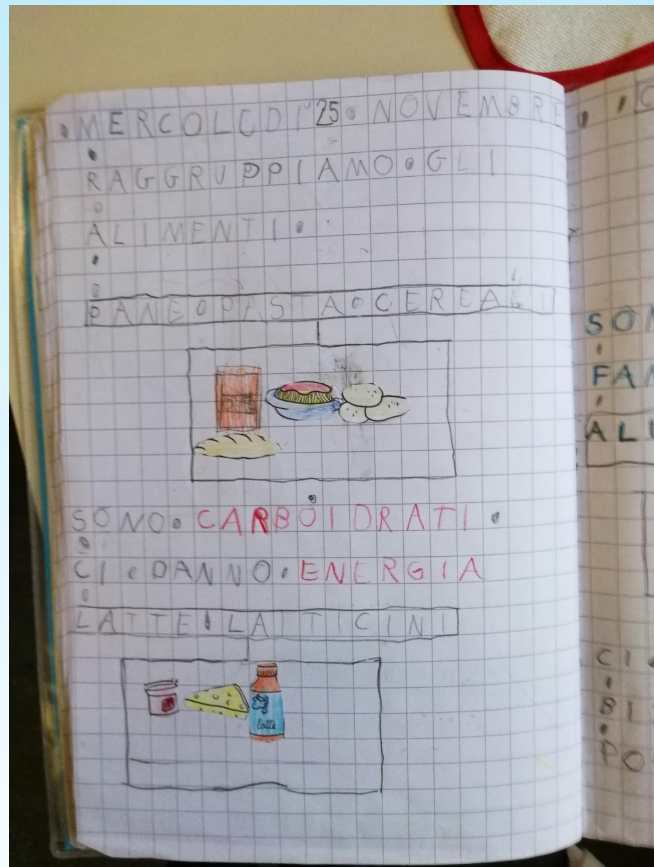 MERCOLEDI 25 NOVEMBRE
RAGGRUPPIAMO GLI
ALIMENTI
PANE PASTA CEREALI
SONO CARBOIDRATI
CI DANNO ENERGIA
LATTE LATTICINI
latte
SON
FAM
ALI
CI
BI
PO